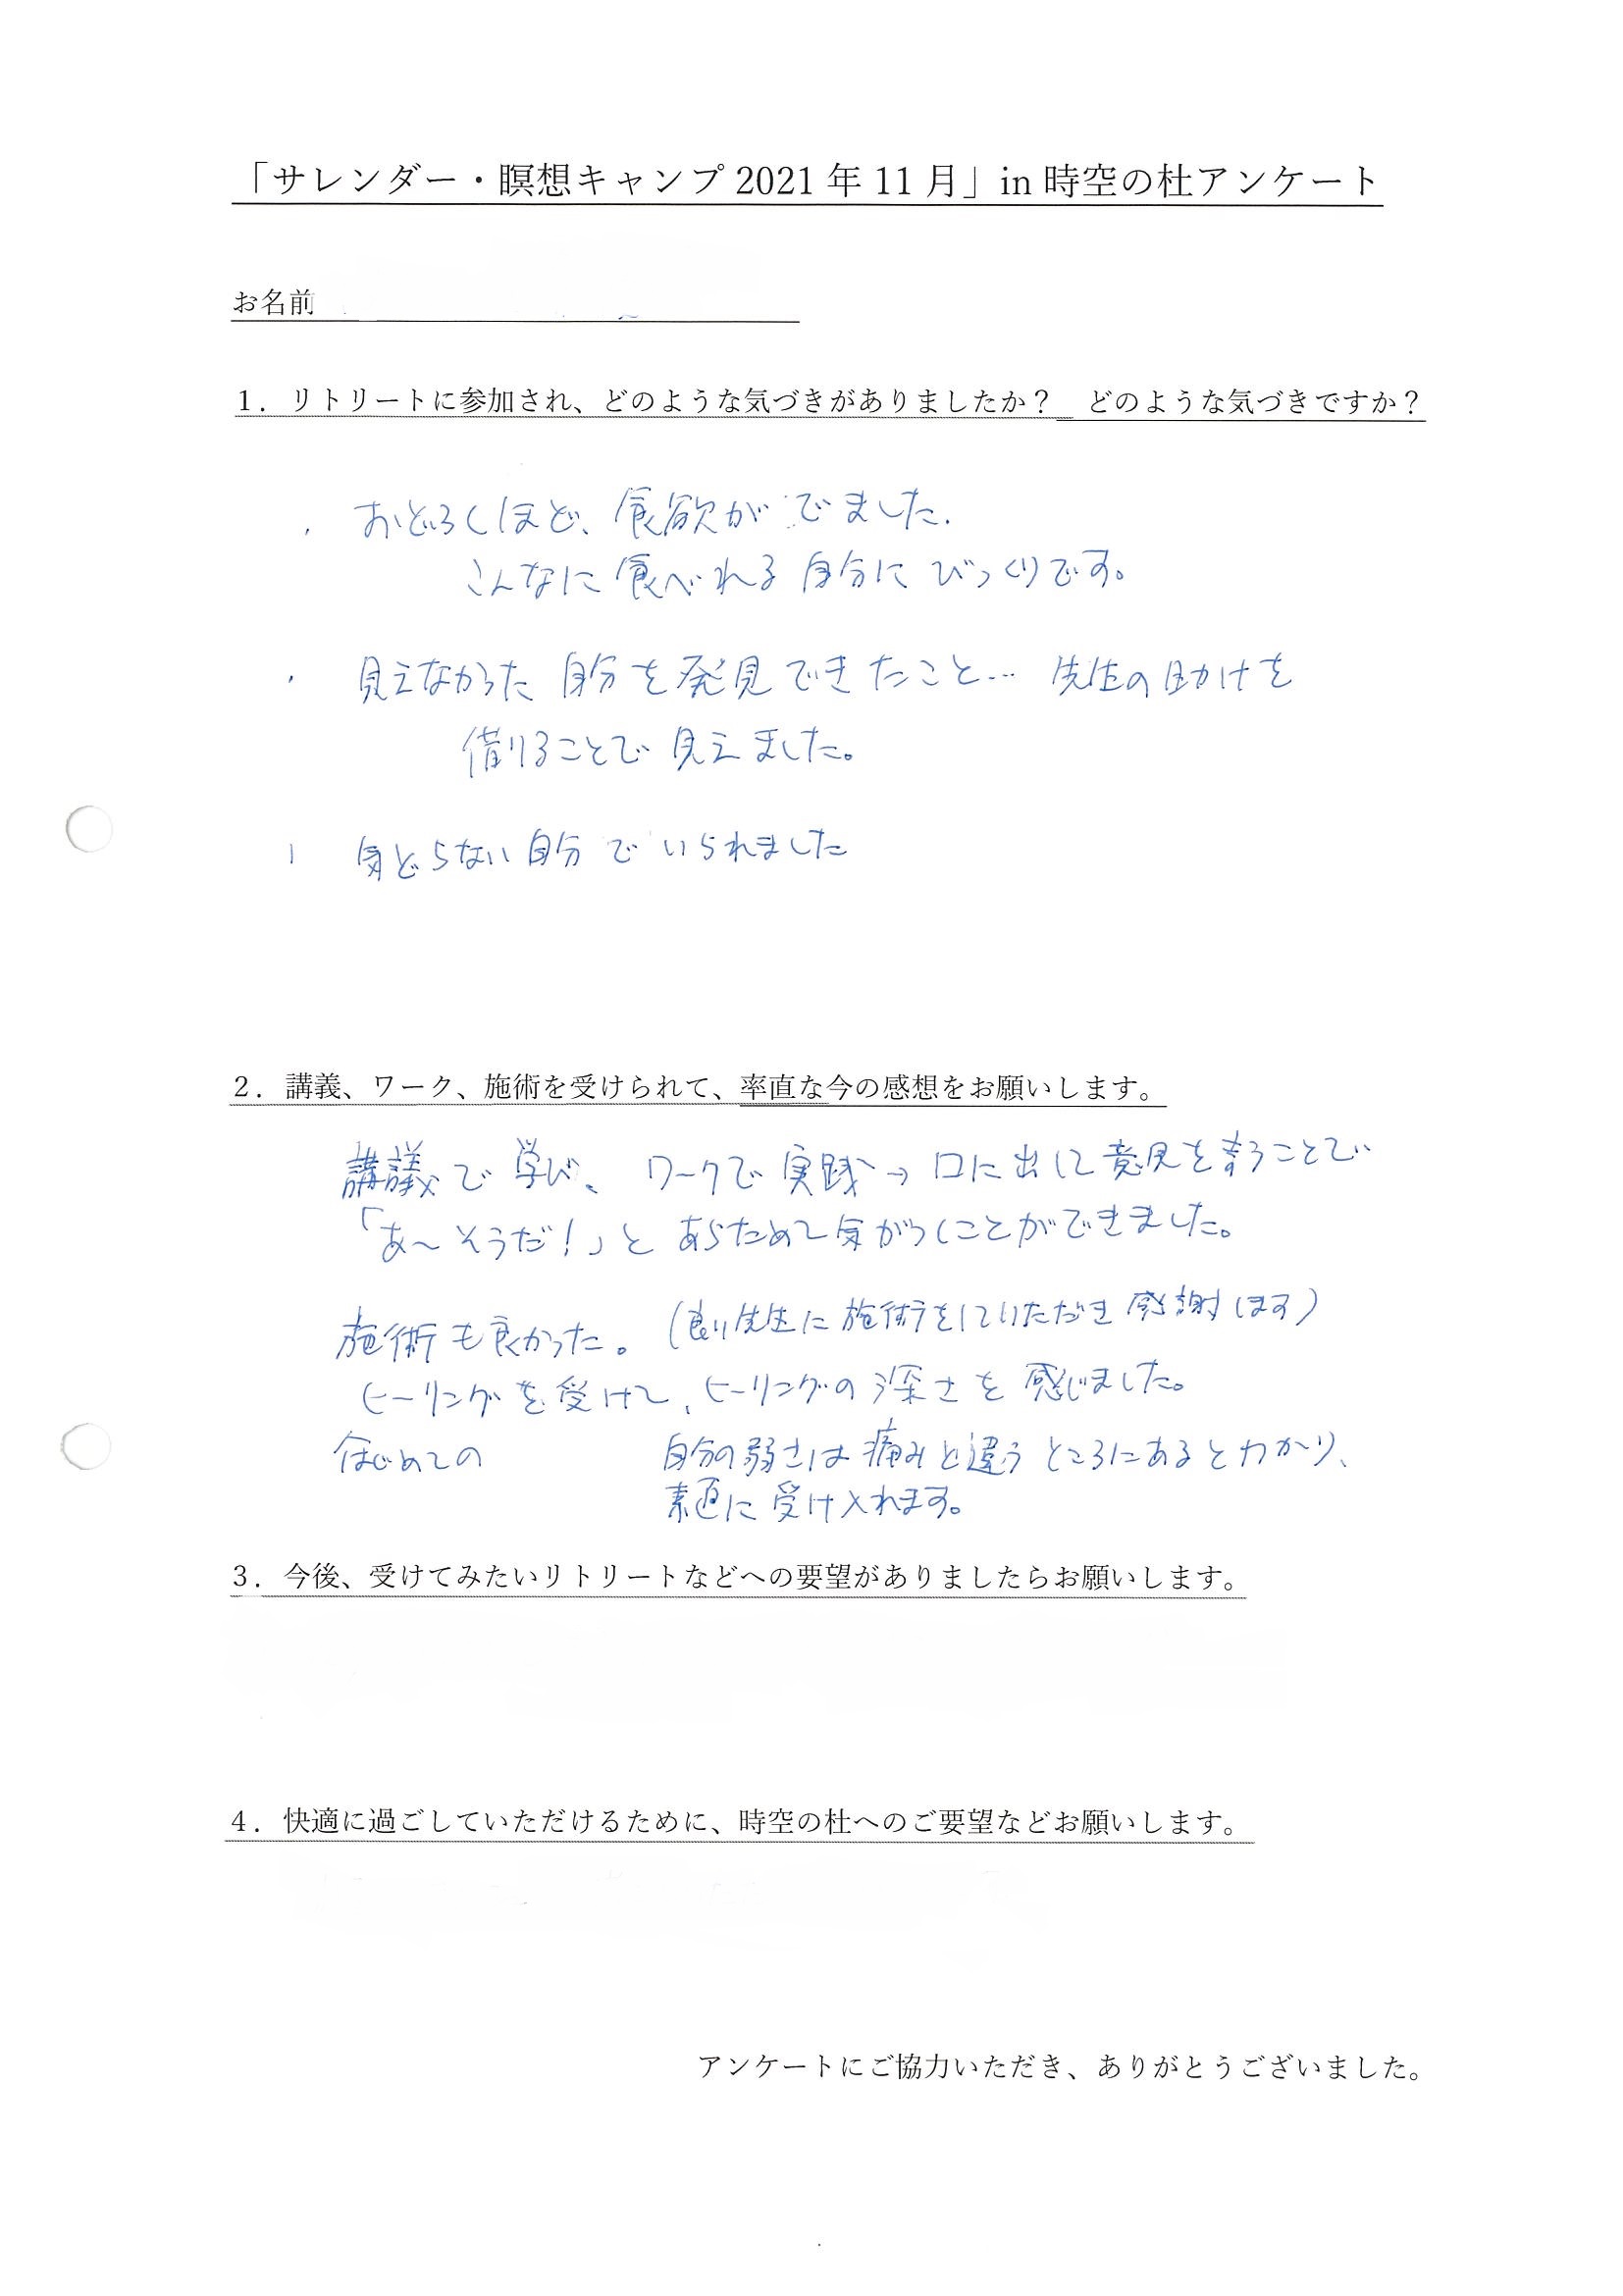 「サレンダー・瞑想キャンプ 2021 年 11 月」in 時空の杜アンケート
お名前
1．リトリートに参加され、どのような気づきがありましたか？ どのような気づきですか？
・ おどろくほど、食欲がでました.
こんなに食べれる自分にびっくりです。
・ 見えなかった自分を発見できたこと… 先生の助けを
借りることで見えました。
・ 気どらない自分でいられました
2．講義、ワーク、施術を受けられて、率直な今の感想をお願いします。
講議で学び、ワークで実践→口に出して意見を言うことで
「あ〜そうだ！」とあらためて気がつくことができました。
施術も良かった。（良い先生に施術をしていただき感謝します）
ヒーリングを受けて、ヒーリングの深さを感じました。
はじめての 自分の弱さは痛みと違うところにあるとわかり、
素直に受け入れます。
3．今後、受けてみたいリトリートなどへの要望がありましたらお願いします。
4．快適に過ごしていただけるために、時空の杜へのご要望などお願いします。
アンケートにご協力いただき、ありがとうございました。